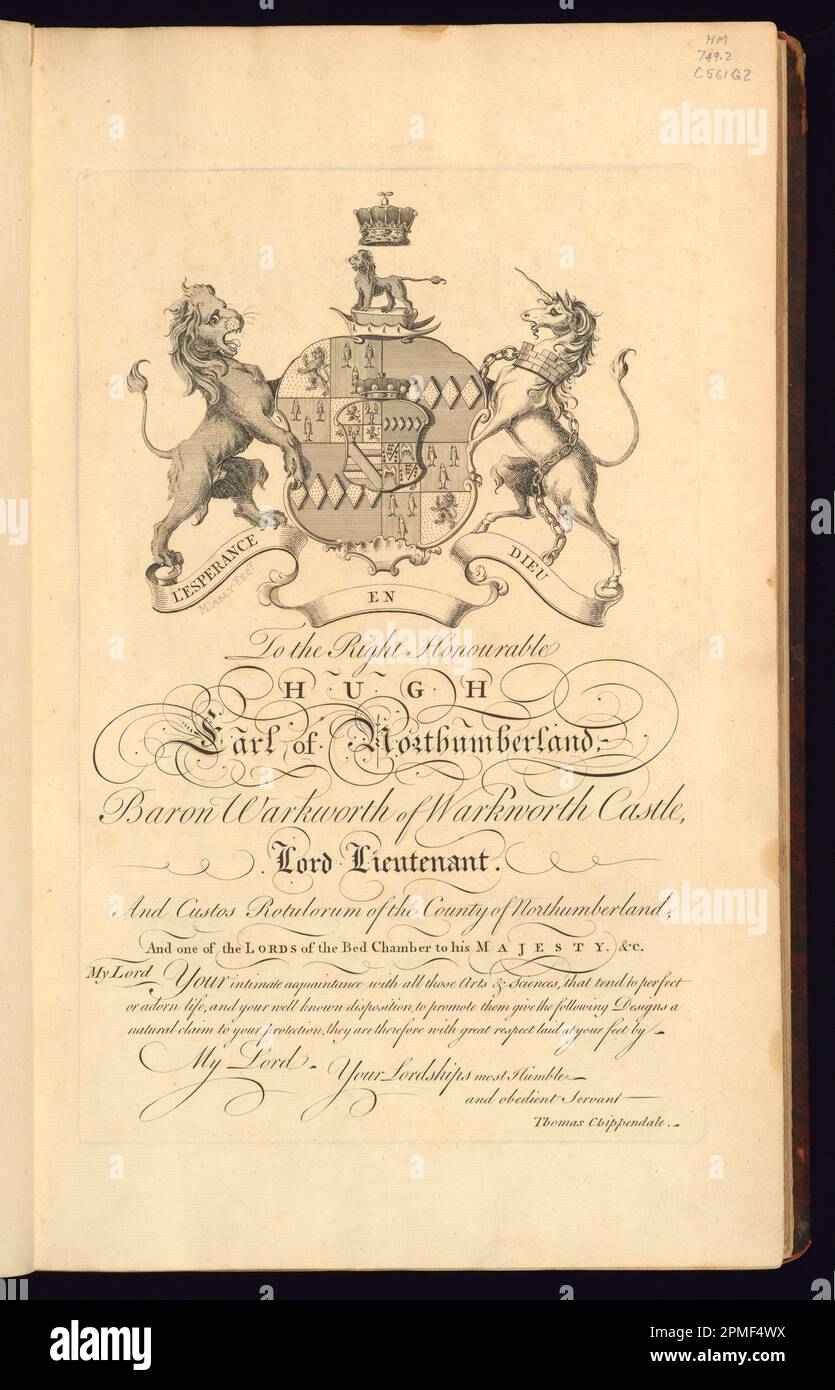 HM
749.2
C561G2
L'ESPERANCE
EN
DIEU
M DARLY Sc
To the Right Honourable
HUGH
Earl of Northumberland,
Baron Warkworth of Warkworth Castle,
Lord Lieutenant.
And Custos Rotulorum of the County of Northumberland,
And one of the LORDS of the Bed Chamber to his MAJESTY. &c.
My Lord Your intimate acquaintance with all those Arts & Sciences, that tend to perfect
or adorn life, and your well known disposition, to promote them give the following Designs a
natural claim to your protection, they are therefore with great respect laid at your feet by
My Lord
Your Lordships most Humble
and obedient Servant
Thomas Chippendale.
a
alamy
alamy
Image ID: 2PMF4WX
www.alamy.com